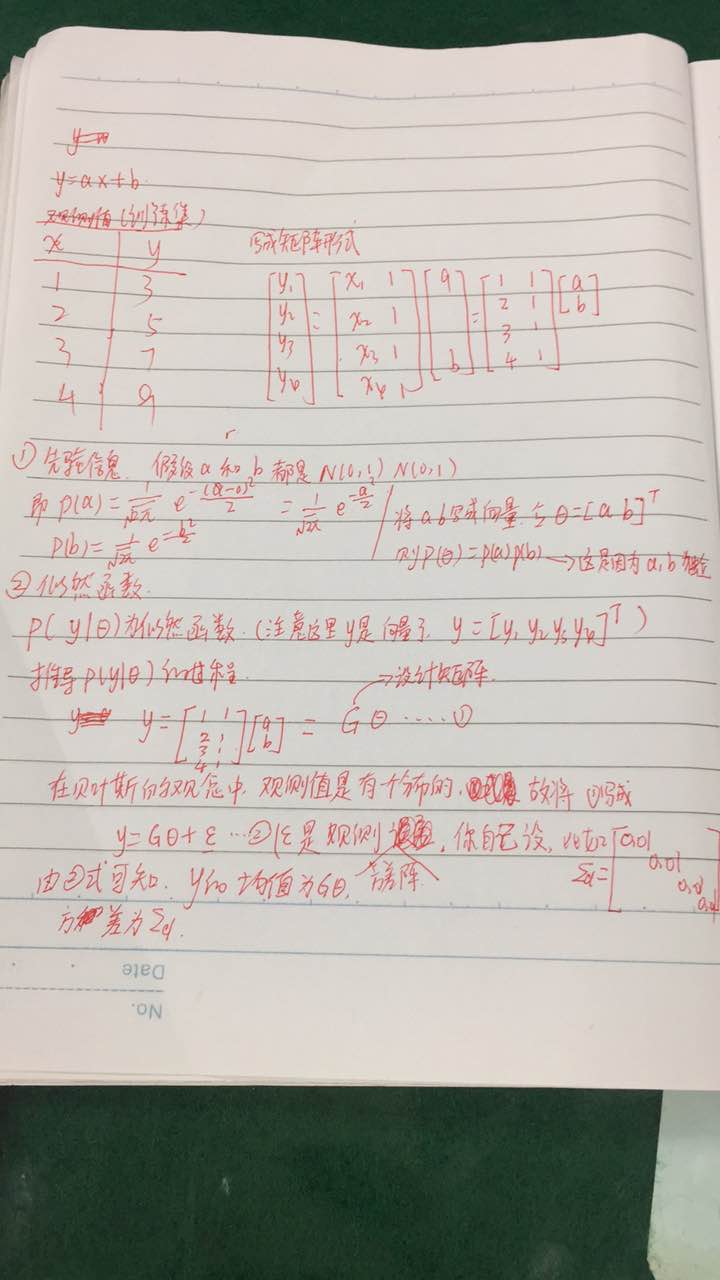 y=ax+b
观测值(训练集)
x y
1 3
2 5
3 7
4 9
写成矩阵形式
[y1 y2 y3 y4] = [x1 1 x2 1 x3 1 x4 1] [a b] = [1 1 2 1 3 1 4 1] [a b]
① 先验信息. 假设 a 和 b 都是 N(0,1) N(0,1)
即 p(a) = 1/√2π e^-(a-0)²/2 = 1/√2π e^-a²/2
p(b) = 1/√2π e^-b²/2
将 a b 写成向量 令 θ=[a b]^T
则 p(θ) = p(a) p(b) → 这是因为 a,b 独立
② 似然函数.
p(y|θ) 为似然函数. (注意这里 y 是向量了 y=[y1 y2 y3 y4]^T)
推导 p(y|θ) 的过程.
→ 设计矩阵.
y = [1 1 2 1 3 1 4 1] [a b] = Gθ ····· ①
在贝叶斯的观念中, 观测值是有个分布的, 故将 ①写成
y = Gθ + ε ··· ② (ε 是观测 , 你自己设, 比如 Σd = [0.01 0.01 0.01 0.01]
由②式可知. y的均值为Gθ.
方差为 Σd.
Date
No.